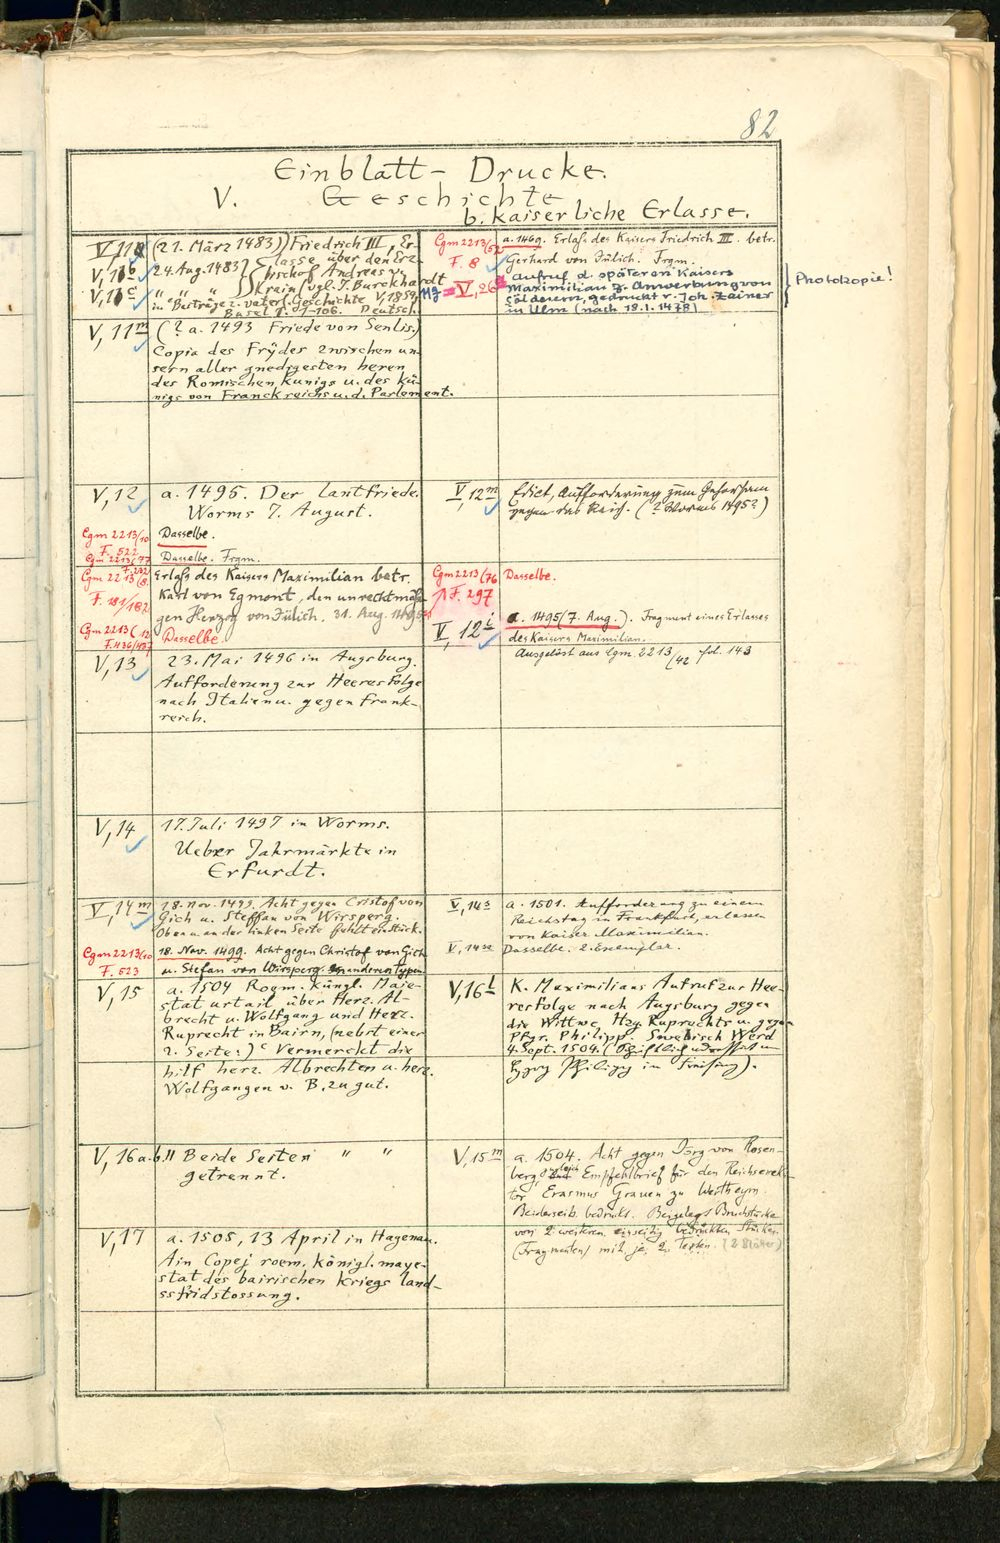 82
Einblatt - Drucke.
V. Geschichte
b. Kaiserliche Erlasse.
V,11a (21. März 1483) Friedrich III, Er-
V,11b 24. Aug. 1483 lasse über den Erz-
bischof Andreas v.
V,11c " " " Krain (vgl. J. Burckhardt
in "Beiträge z. vaterl. Geschichte V, 1859,
Basel S. 1-106. Deutsch.
V, 11m (? a. 1493 Friede von Senlis.)
Copia des Frÿdes zwischen un-
sern aller gnedigesten heren
des Romischen Kunigs u. des Kü-
nigs von Franckreichs u. d. Parlement.
V,12 a. 1495. Der lantfriede.
Worms 7. August.
Cgm 2213/10 Dasselbe.
F. 522
Cgm 2213/77 Dasselbe. Frgm.
F. 232
Cgm 2213/8. Erlaß des Kaisers Maximilian betr.
F. 181/182 Karl von Egmont, den unrechtmäßi-
gen Herzog von Jülich. 31. Aug. 1495
Cgm 2213/12 Dasselbe.
F. 436/437
V,13 23. Mai 1496 in Augsburg.
Aufforderung zur Heeresfolge
nach Italien u. gegen Frank-
reich.
V,14 17. Juli 1497 in Worms.
Ueber Jahrmärkte in
Erfurdt.
V,14m 18. Nov. 1499. Acht gegen Cristof von
Gich u. Steffan von Wirsperg.
Oben an der linken Seite fehlt ein Stück.
Cgm 2213/10 18. Nov. 1499. Acht gegen Christof von Gich
F. 523 u. Stefan von Wirsperg. In anderen Typen.
V,15 a. 1504 Roem. Küngl. Maje-
stat urtail über Herz. Al-
brecht u. Wolfgang und Herz.
Ruprecht in Bairn, (nebst einer
2. Seite:) Vermerckt die
hilf herz. Albrechten u. herz.
Wolfgangen v. B. zu gut.
V,16a.b. II Beide Seiten " "
getrennt.
V,17 a. 1505, 13 April in Hagenau.
Ain Copej roem. Königl. maye-
stat des bairischen Kriegs land-
ssfridstossung.
Cgm 2213/52 a. 1469. Erlaß des Kaisers Friedrich III. betr.
F. 8 Gerhard von Jülich. Frgm.
V,26 Aufruf d. späteren Kaisers
Maximilian z. Anwerbung von
Söldnern, gedruckt v. Joh. Zainer
in Ulm (nach 18.1.1478)
Photokopie!
V,12m Edict, Aufforderung zum Gehorsam
gegen das Reich. (? Worms 1495?)
Cgm 2213/76 Dasselbe.
F. 297
V,12i a. 1495 (7. Aug.). Fragment eines Erlasses
des Kaisers Maximilian.
Ausgelöst aus Cgm. 2213/42 fol. 143
V,14s a. 1501. Aufforderung zu einem
Reichstag in Frankfurt, erlassen
von Kaiser Maximilian.
V,14sa Dasselbe. 2. Exemplar.
V,16l K. Maximilians Aufruf zur Hee-
resfolge nach Augsburg gegen
die Wittwe Hzg Ruprechts u. gegen
Pfgr. Philipp. Swebisch Werd
4. Sept. 1504. (
Herzog Philipp in Freising).
V,15m a. 1504. Acht gegen Jörg von Rosen-
berg, zugleich Empfehlbrief für den Reichserek-
tor Erasmus Grauen zu Wertheym.
Beiderseib. bedruckt. Beigelegt Bruchstücke
von 2 weiteren einseitig bedruckten Stücken.
(Fragmenten) mit je 2 Texten. (2 Blätter)